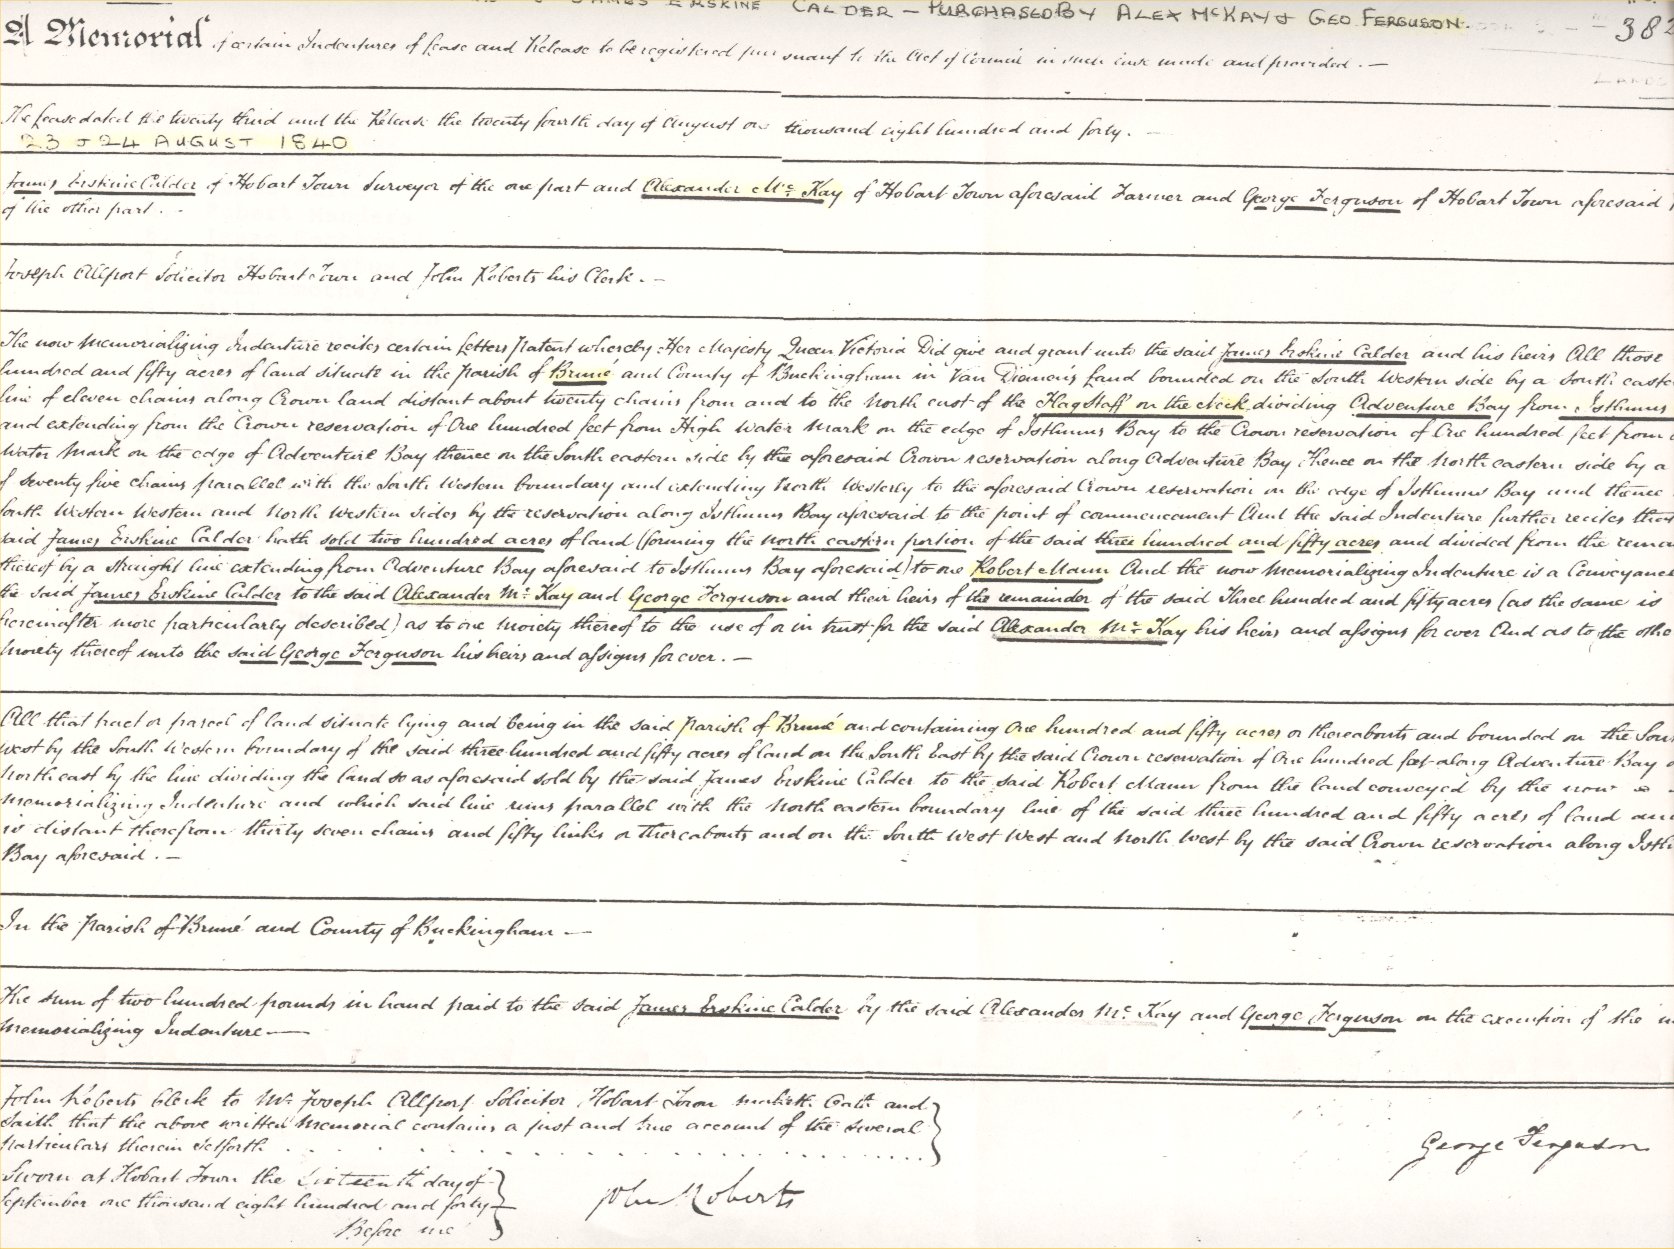 JAMES ERSKINE CALDER — PURCHASED BY ALEX McKAY & GEO. FERGUSON.
382
A Memorial of certain Indentures of Lease and Release to be registered pursuant to the Act of Council in such case made and provided. —
LANDS
The Lease dated the twenty third and the Release the twenty fourth day of August one thousand eight hundred and forty. —
23 & 24 AUGUST 1840
James Erskine Calder of Hobart Town Surveyor of the one part and Alexander Mc Kay of Hobart Town aforesaid Farmer and George Ferguson of Hobart Town aforesaid
of the other part. -
Joseph Allport Solicitor Hobart Town and John Roberts his Clerk. —
The now Memorializing Indenture recites certain Letters Patent whereby Her Majesty Queen Victoria Did give and grant unto the said James Erskine Calder and his heirs All those
hundred and fifty acres of land situate in the Parish of Bruné and County of Buckingham in Van Diemen's Land bounded on the South Western side by a South easte
line of eleven chains along Crown land distant about twenty chains from and to the North east of the Flag Staff on the Neck dividing Adventure Bay from Isthmus
and extending from the Crown reservation of One hundred feet from High Water Mark on the edge of Isthmus Bay to the Crown reservation of One hundred feet from
Water Mark on the edge of Adventure Bay thence on the South eastern side by the aforesaid Crown reservation along Adventure Bay thence on the North eastern side by a
of seventy five chains parallel with the South Western boundary and extending North Westerly to the aforesaid Crown reservation on the edge of Isthmus Bay and thence
South Western Western and North Western sides by the reservation along Isthmus Bay aforesaid to the point of commencement And the said Indenture further recites that
said James Erskine Calder hath sold two hundred acres of land (forming the north eastern portion of the said three hundred and fifty acres and divided from the remai
thereof by a straight line extending from Adventure Bay aforesaid to Isthmus Bay aforesaid) to one Robert Mann And the now Memorializing Indenture is a Conveyance
the said James Erskine Calder to the said Alexander Mc Kay and George Ferguson and their heirs of the remainder of the said Three hundred and fifty acres (as the same is
hereinafter more particularly described) as to one moiety thereof to the use of or in trust for the said Alexander Mc Kay his heirs and assigns for ever And as to the othe
Moiety thereof unto the said George Ferguson his heirs and assigns for ever. —
All that tract or parcel of land situate lying and being in the said Parish of Bruné and containing One hundred and fifty acres or thereabouts and bounded on the Sou
West by the South Western boundary of the said three hundred and fifty acres of land on the South East by the said Crown reservation of One hundred feet along Adventure Bay
North east by the line dividing the land so as aforesaid sold by the said James Erskine Calder to the said Robert Mann from the land conveyed by the now
Memorializing Indenture and which said line runs parallel with the North eastern boundary line of the said three hundred and fifty acres of land and
is distant therefrom thirty seven chains and fifty links or thereabouts and on the South West West and North West by the said Crown reservation along Isth
Bay aforesaid. —
In the Parish of Bruné and County of Buckingham —
The sum of two hundred pounds in hand paid to the said James Erskine Calder by the said Alexander Mc Kay and George Ferguson on the execution of the
Memorializing Indenture —
John Roberts Clerk to Mr Joseph Allport Solicitor Hobart Town maketh Oath and
saith that the above written Memorial contains a just and true account of the several
particulars therein setforth
George Ferguson
Sworn at Hobart Town the Sixteenth day of
September one thousand eight hundred and forty
John Roberts
Before me